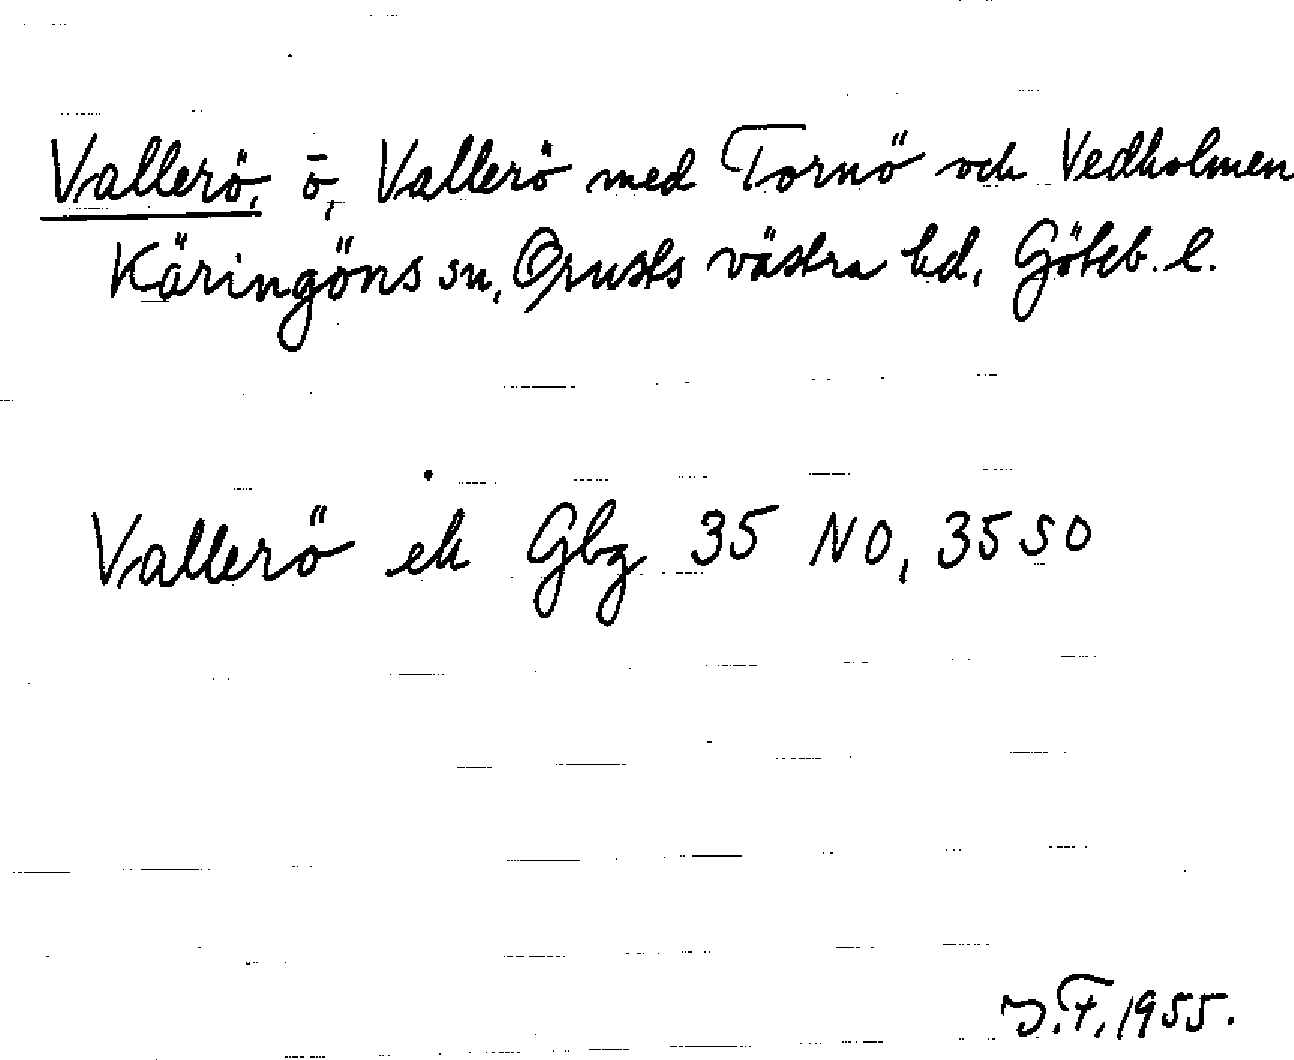 Vallerö, ö, Vallerö med Tornö och Vedholmen
Käringöns sn, Orusts västra hd, Göteb. l.
Vallerö ek Gbg 35 NO, 35 SO
J.F. 1955.